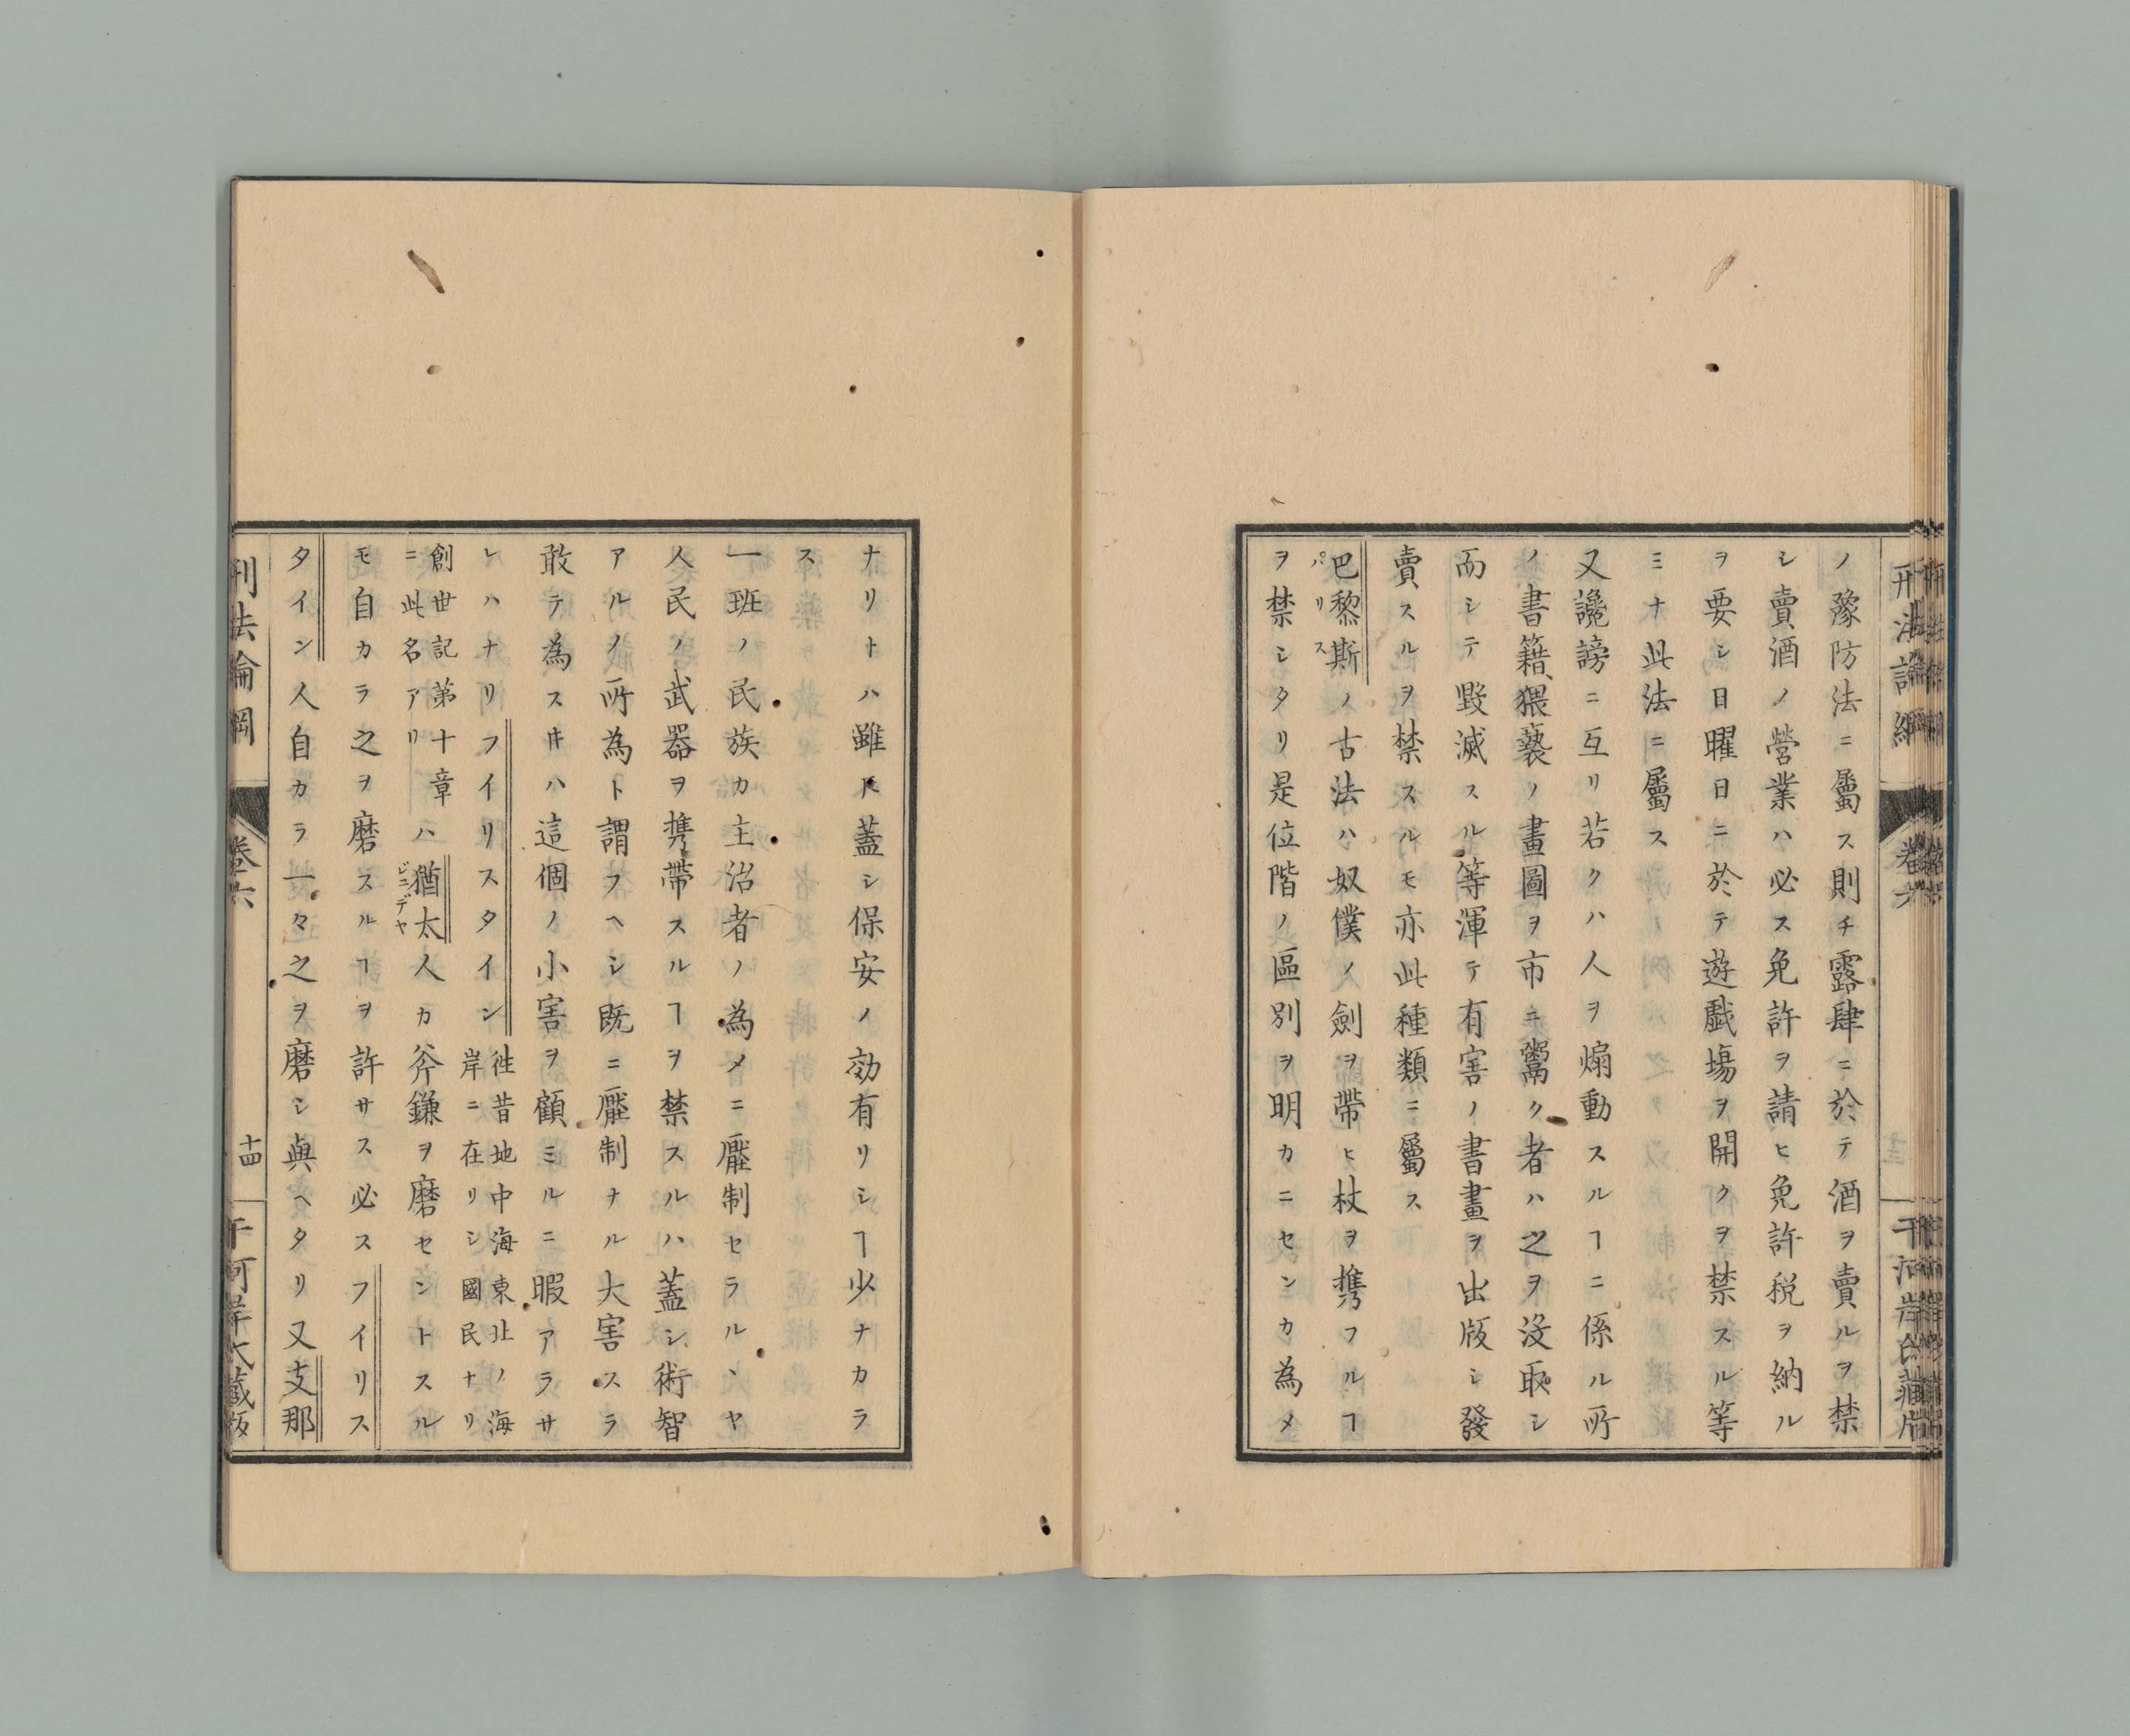 ノ豫防法ニ屬ス則チ露肆ニ於テ酒ヲ賣ルヲ禁
シ賣酒ノ營業ハ必ス免許ヲ請ヒ免許税ヲ納ル
ヲ要シ日曜日ニ於テ遊戲場ヲ開クヲ禁スル等
ミナ此法ニ屬ス
又讒謗ニ互リ若クハ人ヲ煽動スルヿニ係ル所
ノ書籍猥褻ノ畫圖ヲ市ニ鬻ク者ハ之ヲ没取シ
而シテ毀滅スル等渾テ有害ノ書畫ヲ出版シ發
賣スルヲ禁スルモ亦此種類ニ屬ス
巴黎斯ノ古法ハ奴僕ノ劍ヲ帶ヒ杖ヲ携フルヿ
パリス
ヲ禁シタリ是位階ノ區別ヲ明カニセンカ為メ
ナリトハ雖𪜈蓋シ保安ノ効有リシヿ少ナカラ
ス
一班ノ民族カ主治者ノ為メニ壓制セラルヽヤ
人民ノ武器ヲ携帶スルヿヲ禁スルハ蓋シ術智
アルノ所為ト謂フヘシ既ニ壓制ナル大害スラ
敢テ為スキハ這個ノ小害ヲ顧ミルニ暇アラサ
レハナリフイリスタイン
徃昔地中海東北ノ海
岸ニ在リシ國民ナリ
創世記第十章
ニ此名アリ
ハ猶太人カ斧鎌ヲ磨セントスル
ジユデヤ
モ自カラ之ヲ磨スルヿヲ許サス必スフイリス
タイン人自カラ一々之ヲ磨シ與ヘタリ又支那
刑法論綱
卷六
十四
千河岸氏藏版